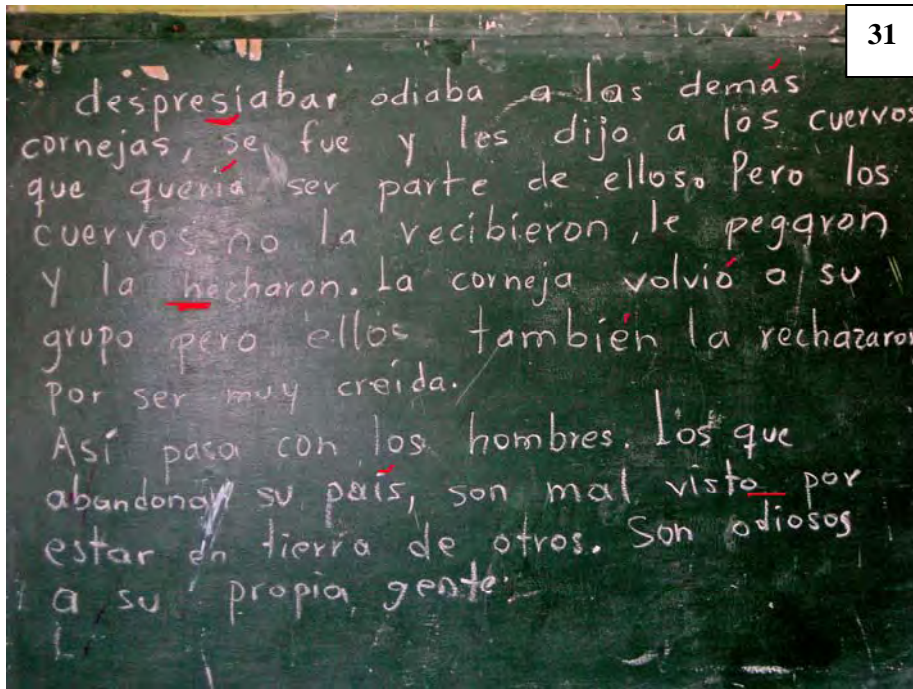 31
despresiabar odiaba a las demás
cornejas, se fue y les dijo a los cuervos
que quería ser parte de ellos. Pero los
cuervos no la recibieron, le pegaron
y la hecharon. La corneja volvió a su
grupo pero ellos también la rechazaron
por ser muy creída.
Así pasa con los hombres. Los que
abandonan su país, son mal visto por
estar en tierra de otros. Son odiosos
a su propia gente.
L